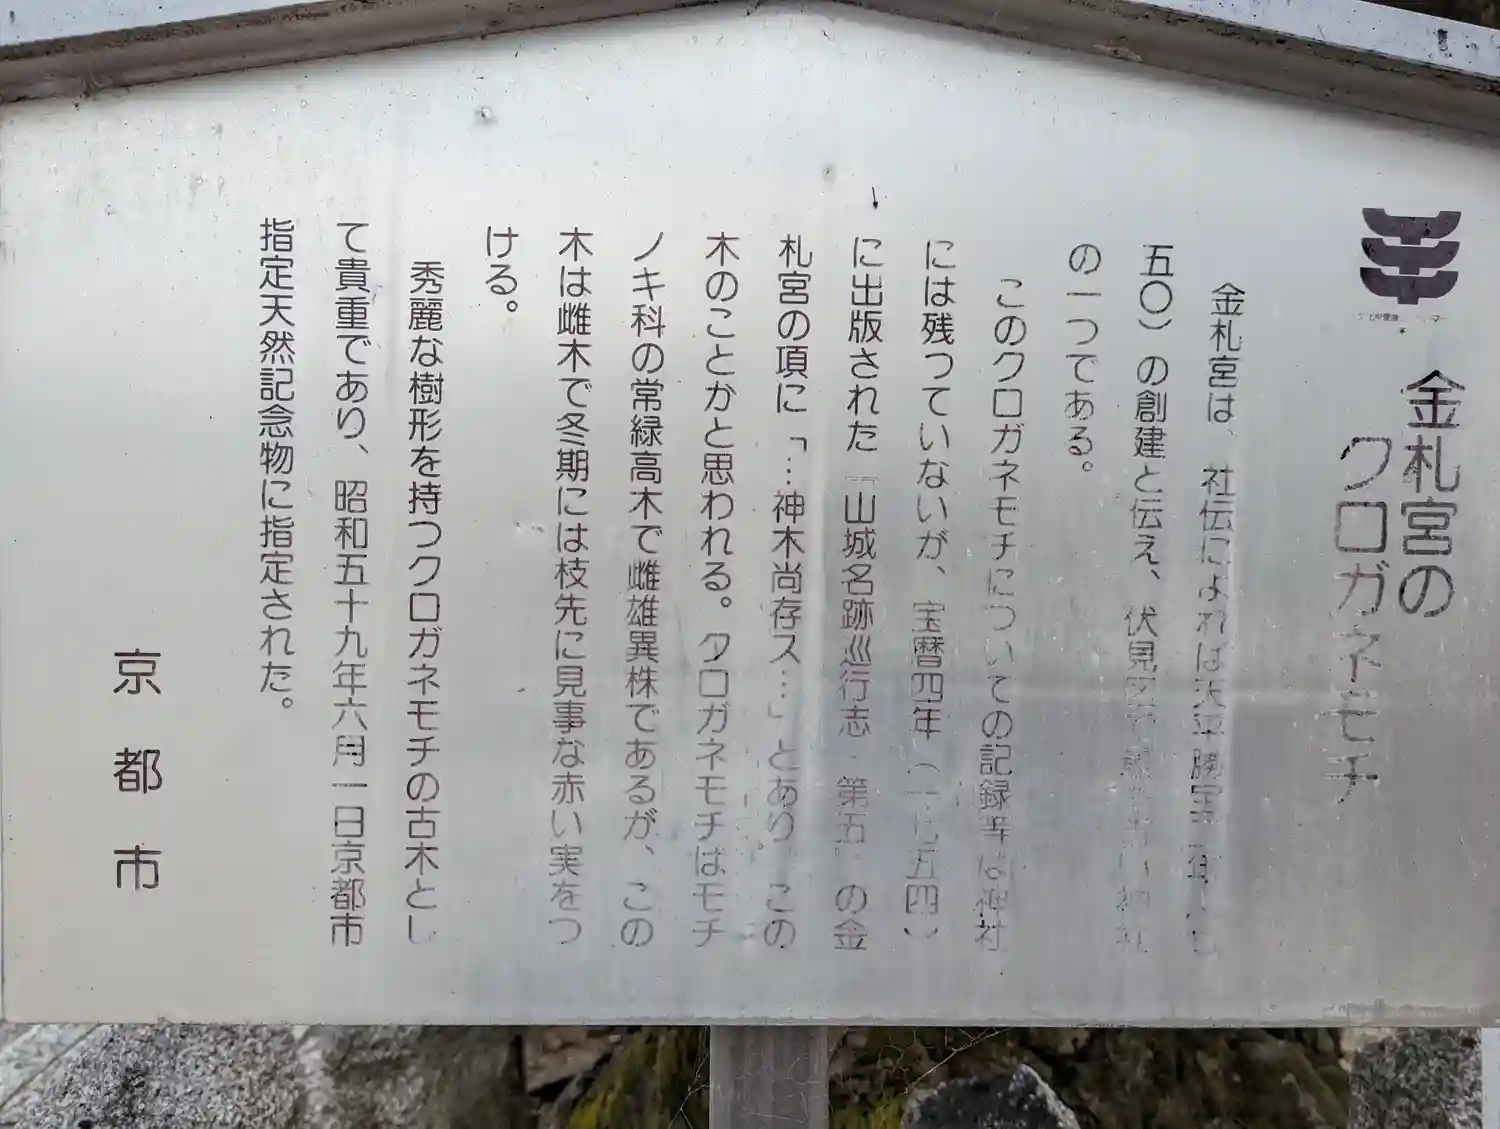 金札宮の
クロガネモチ
金札宮は、社伝によれば天平勝宝二年（七
五〇）の創建と伝え、伏見区で い神社
の一つである。
このクロガネモチについての記録等は神社
には残つていないが、宝暦四年（一七五四）
に出版された『山城名跡巡行志・第五』の金
札宮の項に「…神木尚存ス…」とあり、この
木のことかと思われる。クロガネモチはモチ
ノキ科の常緑高木で雌雄異株であるが、この
木は雌木で冬期には枝先に見事な赤い実をつ
ける。
秀麗な樹形を持つクロガネモチの古木とし
て貴重であり、昭和五十九年六月一日京都市
指定天然記念物に指定された。
京都市